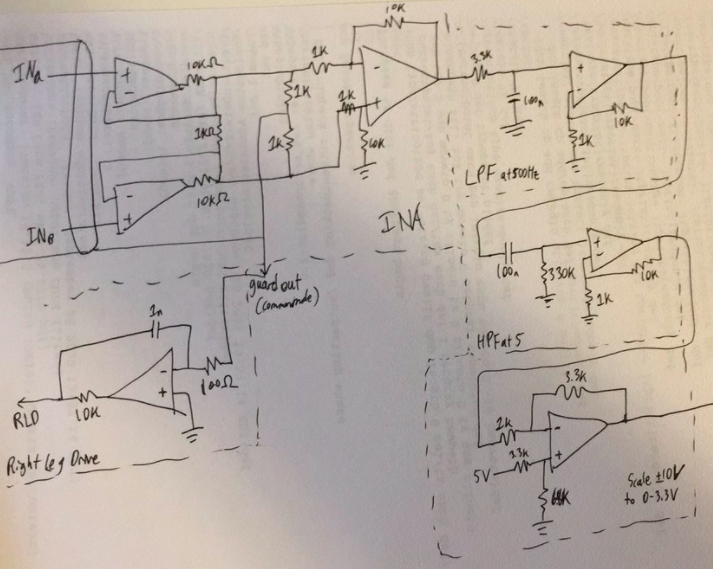 INa
10KΩ
1KΩ
10KΩ
INB
1K
1K
1K
10K
1K
10K
INA
3.3K
100n
1K
10K
LPF at 500Hz
100n
330K
1K
10K
HPF at 5
guard out
(commonmode)
1n
100Ω
10K
RLD
Right Leg Drive
3.3K
1K
3.3K
5V
Scale ±10V
to 0-3.3V